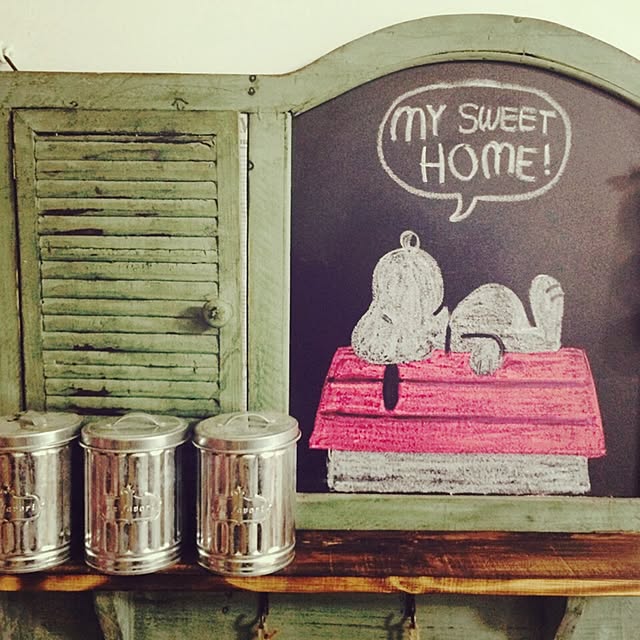 MY SWEET
HOME!